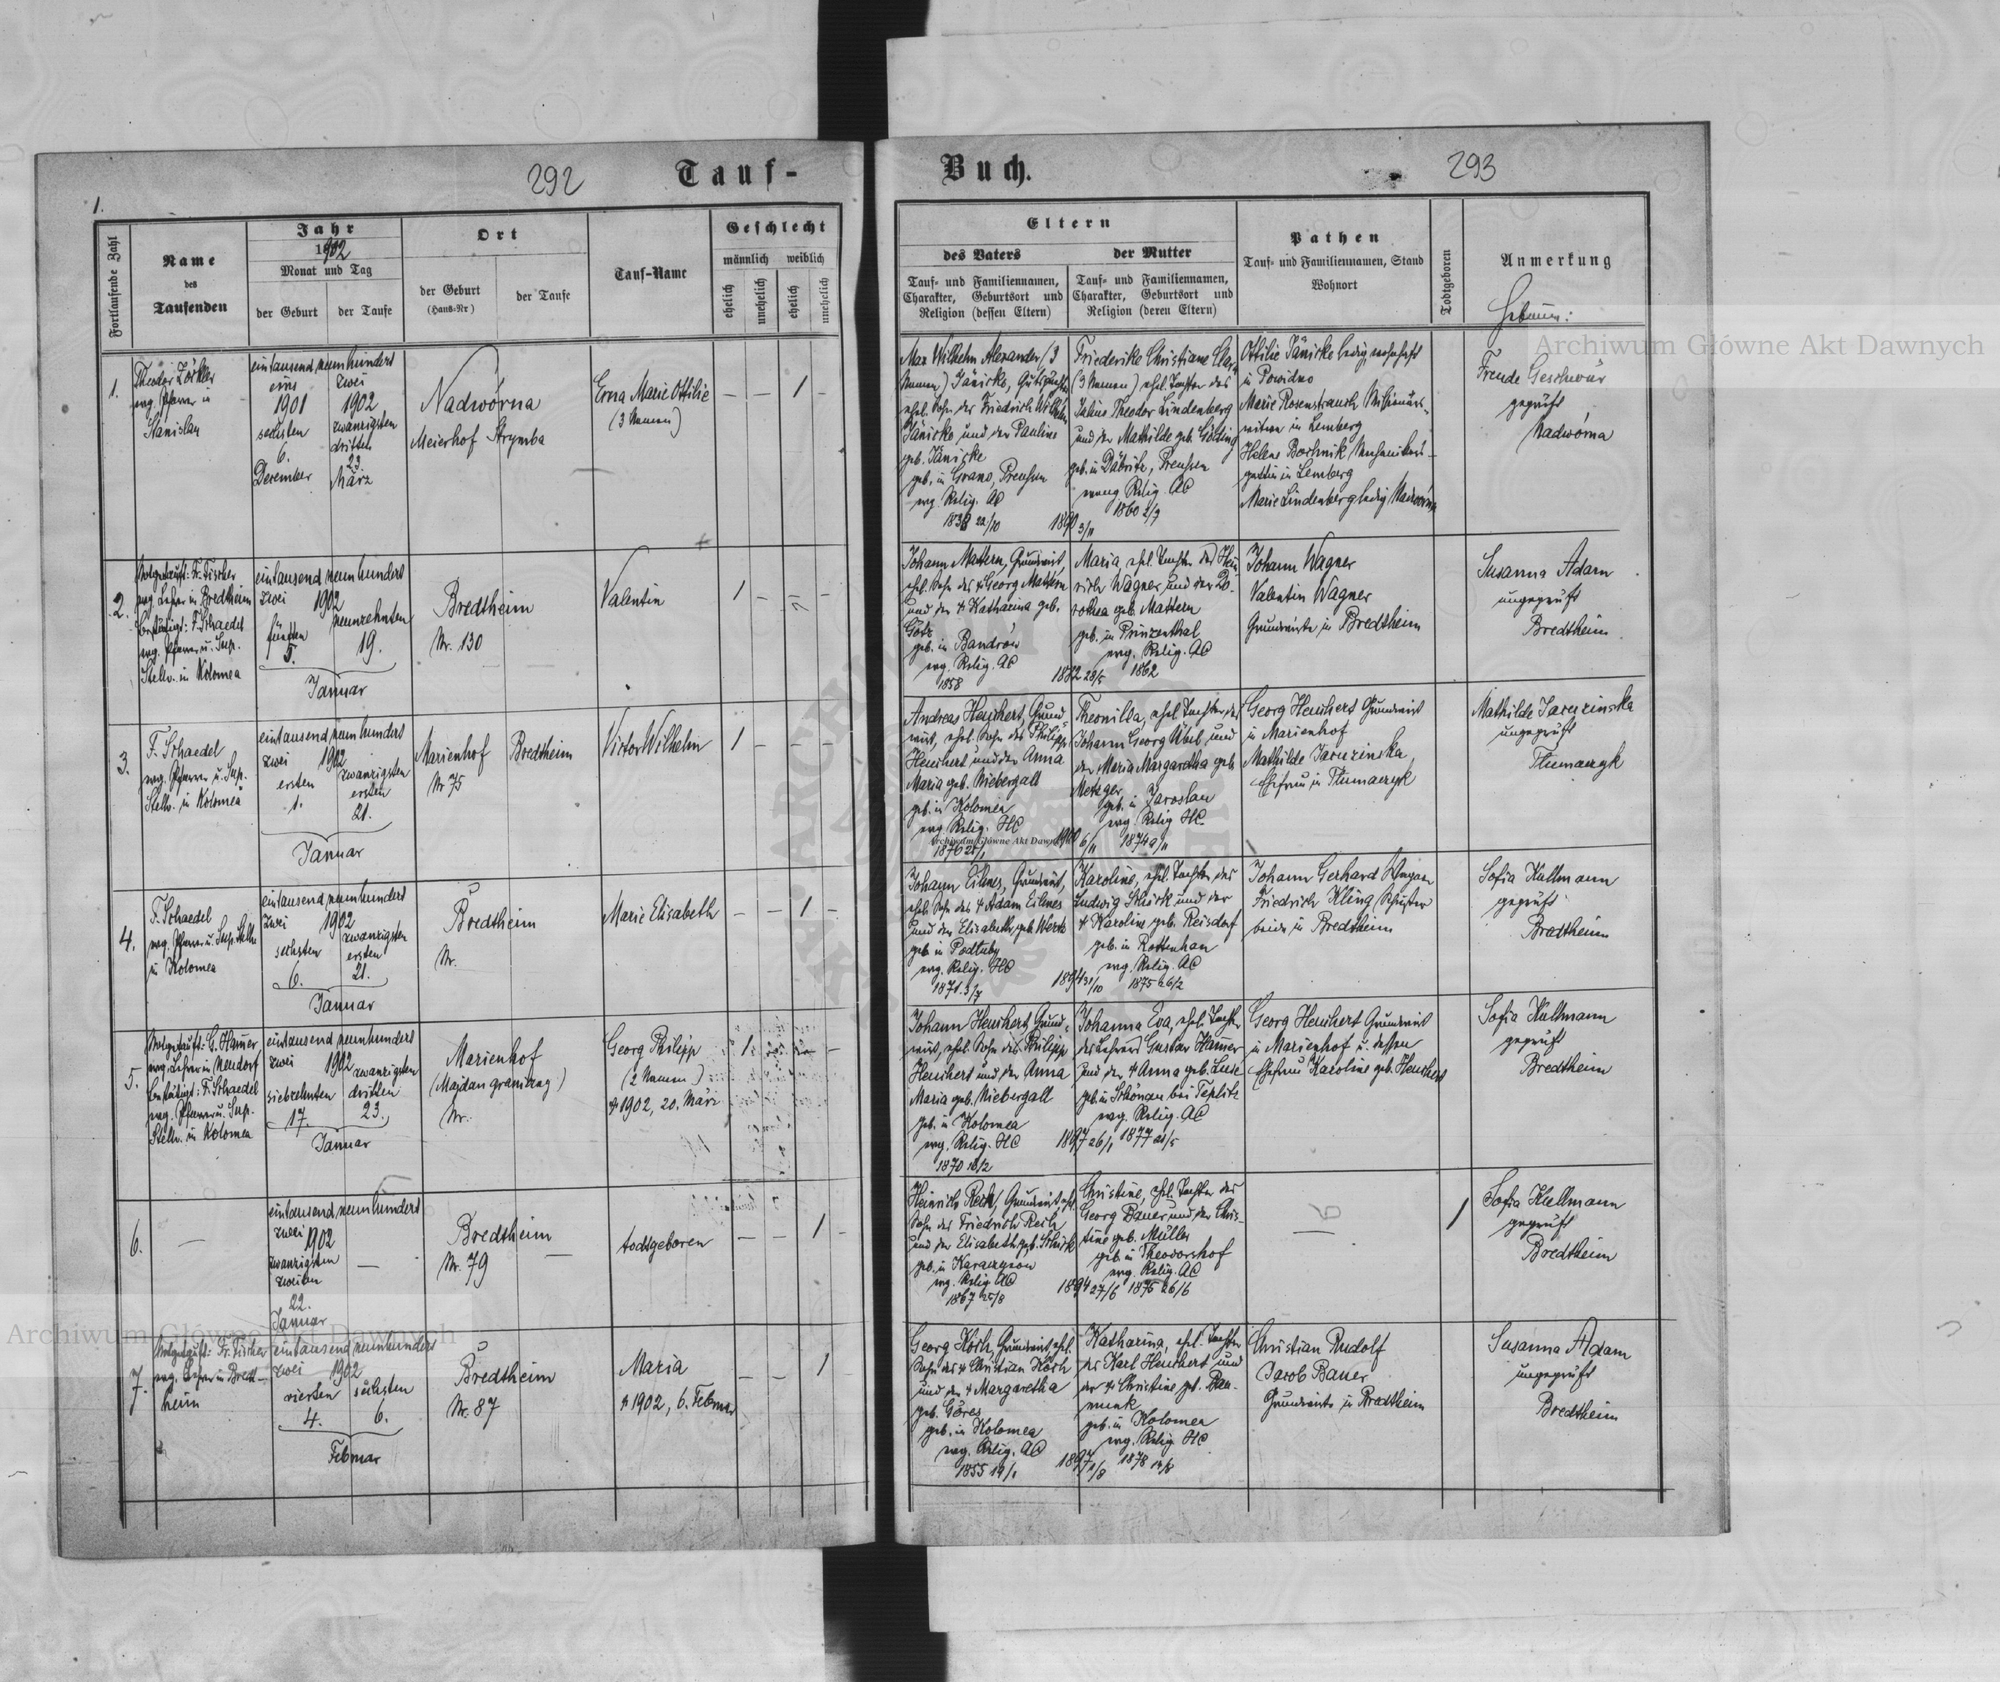 292
Tauf-
Buch.
293
1.
Fortlaufende Zahl
Name
des
Taufenden
Jahr
1902
Monat und Tag
der Geburt
der Taufe
Ort
der Geburt
(Haus-Nr)
der Taufe
Tauf-Name
Geschlecht
männlich
weiblich
ehelich
unehelich
ehelich
unehelich
Eltern
des Vaters
der Mutter
Tauf- und Familiennamen,
Charakter, Geburtsort und
Religion (dessen Eltern)
Tauf- und Familiennamen,
Charakter, Geburtsort und
Religion (deren Eltern)
Pathen
Tauf- und Familiennamen, Stand
Wohnort
Todtgeboren
Anmerkung
Hebamme:
1.
Theodor Zöckler
evg. Pfarrer in
Stanislau
eintausend neunhundert
eins
1901
sechsten
6.
Dezember
zwei
1902
zwanzigsten
dritten
23
März
Nadwórna
Meierhof Strymba
Erna Marie Ottilie
(3 Namen)
— — 1 —
Max Wilhelm Alexander (3
Namen) Jänicke, Gutspächter
ehel. Sohn der Friedrich Wilhelm
Jänicke und der Pauline
geb. Jänicke
geb. in Preußen
evg. Relig. AC
22/10
Friederike Christiane
(3 Namen) ehel. Tochter des
Julius Theodor Lindenberg
und der Mathilde geb. Gölding
geb. in Däbritz, Preußen
evang. Relig. AC
1860 2/7
1890 3/11
Ottilie Jänicke ledig, wohnhaft
in Powidno
Marie Rosenstrauch Missionärs-
witwe in Lemberg
Helene Mechanikers-
gattin in Lemberg
Marie Lindenberg ledig Nadwórna
Freude Geschwür
geprüft
Nadwórna
2.
Notgetauft: Fr. Fischer
evg. Lehrer in Bredtheim
bestätigt: F. Schaedel
evg. Pfarrer u. Sup.
Stellv. in Kolomea
eintausend neunhundert
zwei 1902
fünften
5.
neunzehnten
19.
Januar
Bredtheim
Nr. 130
Valentin
1 — — —
Johann Mattern, Grundwirt,
ehel. Sohn des † Georg Mattern
und der † Katharina geb.
Götz
geb. in Bandrów
evg. Relig. AC
1858
Maria, ehel. Tochter des Hein-
rich Wagner und der Do-
rothea geb. Mattern
geb. in Prinzenthal
evg. Relig. AC
1882 28/5
1862
Johann Wagner
Valentin Wagner
Grundwirte in Bredtheim
Susanna Adam
ungeprüft
Bredtheim
3.
F. Schaedel
evg. Pfarrer u. Sup.
Stellv. in Kolomea
eintausend neunhundert
zwei 1902
ersten
1.
zwanzigsten
ersten
21.
Januar
Marienhof
Nr 75
Bredtheim
Victor Wilhelm
1 — — —
Andreas Heuchert, Grund-
wirt, ehel. Sohn des Philipp
Heuchert und der Anna
Maria geb. Niebergall
geb. in Kolomea
evg. Relig. HC
1876
Theonilla, ehel. Tochter des
Johann Georg Übel und
der Maria Margaretha geb.
Metzger
geb. in Jaroslau
evg. Relig HC
1900 6/11
1874 9/11
Georg Heuchert Grundwirt
in Marienhof
Mathilde Jaruzinska,
Ehefrau in Tłumaczyk
Mathilde Jaruzinska
ungeprüft
Tłumaczyk
4.
F. Schaedel
evg. Pfarrer u. Sup. Stellv.
in Kolomea
eintausend neunhundert
zwei 1902
sechsten
6.
zwanzigsten
ersten
21.
Januar
Bredtheim
Nr.
Marie Elisabeth
— — 1 —
Johann Eilmes, Grundwirt,
ehel. Sohn des † Adam Eilmes
und der Elisabeth geb. Werk
geb. in Podluby
evg. Relig. HC
1871 3/7
Karoline, ehel. Tochter des
Ludwig Schick und der
† Karoline geb. Reisdorf
geb. in Rottenhan
evg. Relig. AC
1894 31/10
1875 26/2
Johann Gerhard Ungarn
Friedrich Kling Schuster
beide in Bredtheim
Sofia Kullmann
geprüft
Bredtheim
5.
Notgetauft: G. Hamer
evg. Lehrer in Neudorf
bestätigt: F. Schaedel
evg. Pfarrer u. Sup.
Stellv. in Kolomea
eintausend neunhundert
zwei 1902
siebzehnten
17.
zwanzigsten
dritten
23.
Januar
Marienhof
(Majdan graniczny)
Nr.
Georg Philipp
(2 Namen)
† 1902, 20. März
1 — — —
Johann Heuchert, Grund-
wirt, ehel. Sohn des Philipp
Heuchert und der Anna
Maria geb. Niebergall
geb. in Kolomea
evg. Relig. HC
1870 16/2
Johanna Eva, ehel. Tochter
des Lehrers Gustav Hamer
und der † Anna geb. Luse
geb. in Schönau bei Teplitz
evg. Relig. AC
1897 26/1
1877 21/5
Georg Heuchert Grundwirt
in Marienhof u. dessen
Ehefrau Karoline geb. Heuchert
Sofia Kullmann
geprüft
Bredtheim
6.
—
eintausend neunhundert
zwei 1902
zwanzigsten
zweiten
22.
Januar
—
Bredtheim
Nr. 79
—
todtgeboren
— — 1 —
Heinrich Rech, Grundwirt, ehel.
Sohn des Friedrich Rech
und der Elisabeth geb. Schick
geb. in
evg. Relig AC
1867 25/8
Christine, ehel. Tochter des
Georg Bauer und der Chris-
tine geb. Müller
geb. in Theodorshof
evg. Relig. AC
1894 27/6
1875 26/6
1
Sofia Kullmann
geprüft
Bredtheim
7.
Notgetauft: Fr. Fischer
evg. Lehrer in Bredt-
heim
eintausend neunhundert
zwei 1902
vierten
4.
sechsten
6.
Februar
Bredtheim
Nr. 87
Maria
† 1902, 6. Februar
— — 1
Georg Köch, Grundwirt, ehel.
Sohn des † Christian Köch
und der † Margaretha
geb. Göres
geb. in Kolomea
evg. Relig. AC
1855 19/1
Katharina, ehel. Tochter
des Karl Heuchert und
der † Christine geb. Dau-
geb. in Kolomea
evg. Relig HC
1897 1/8
1878 14/8
Christian Rudolf
Jacob Bauer
Grundwirte in Bredtheim
Susanna Adam
ungeprüft
Bredtheim
Archiwum Główne Akt Dawnych
Archiwum Główne Akt Dawnych
Archiwum Główne Akt Dawnych